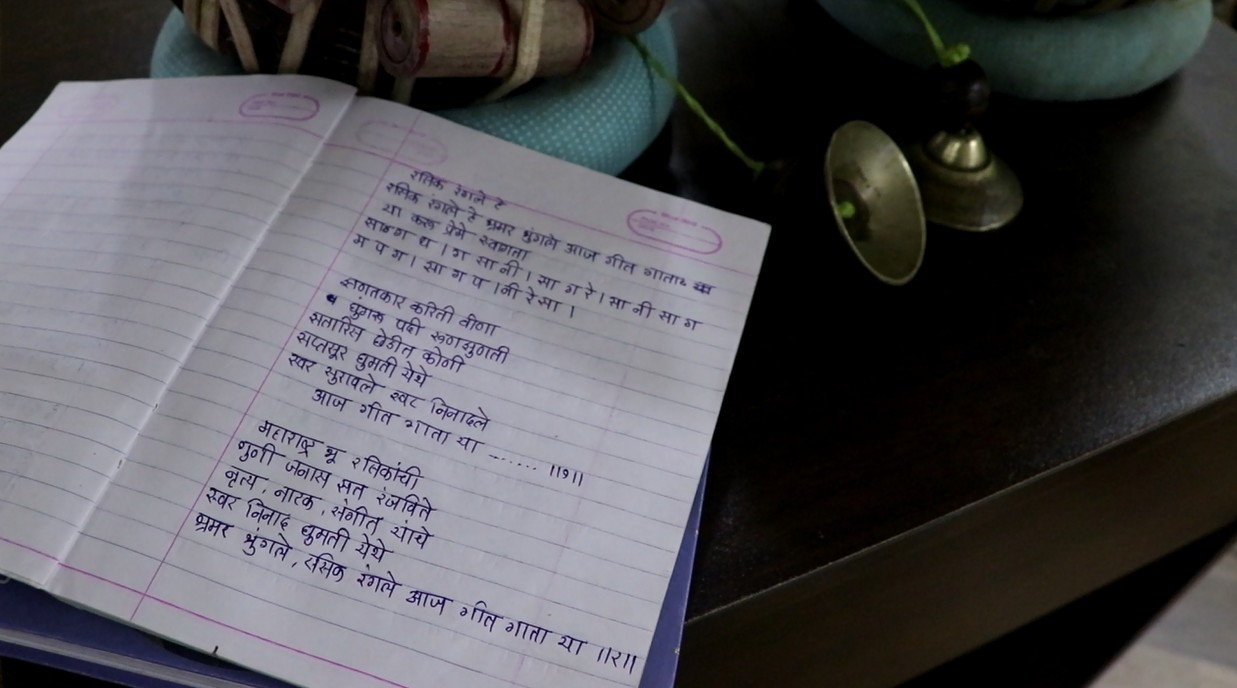 रसिक रंगले हे
रसिक रंगले हे भ्रमर भुंगले आज गीत गाता
या करू प्रेमे स्वागता
ग ध । ग सा नी । सा ग रे । सा नी सा ग
म प ग । सा ग प । नी रे सा ।
संगतकार करिती वीणा
घुंगरू पदी रूणझुणती
सतारिस छेडीत कोणी
सप्तसूर घुमती येथे
स्वर सुरावले स्वर निनादले
आज गीत गाता या ...... ॥१॥
महाराष्ट्र भू रसिकांची
गुणी जनास सत रंजविते
नृत्य, नाटक, संगीत यांचे
स्वर निनाद घुमती येथे
भ्रमर भुंगले, रसिक रंगले आज गीत गाता या ॥२॥